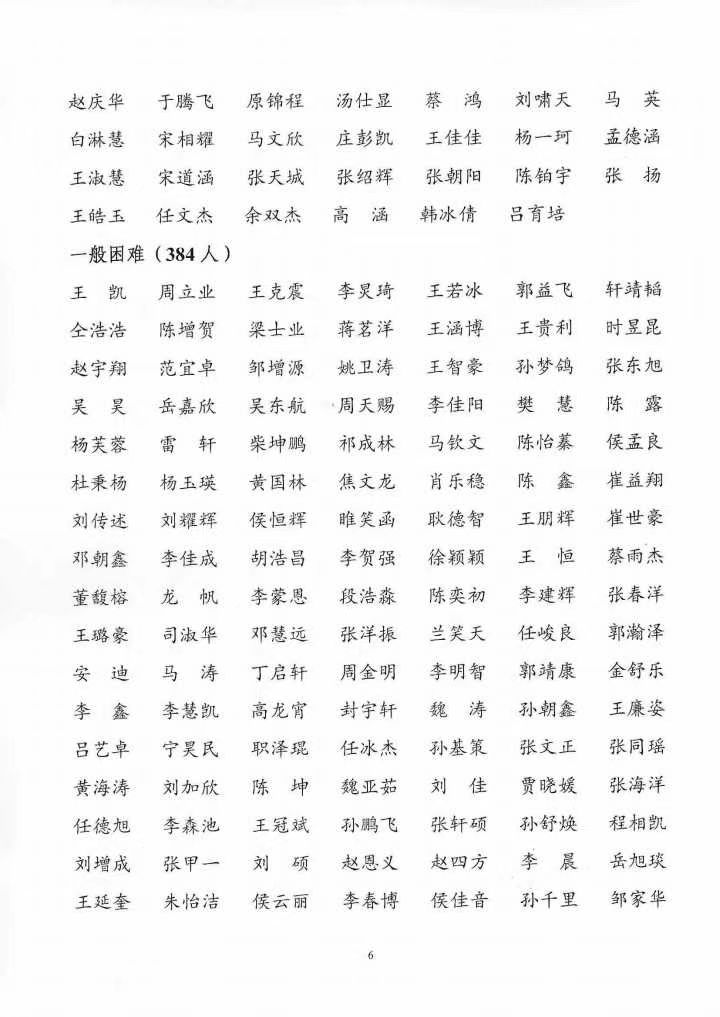 赵庆华 于腾飞 原锦程 汤仕显 蔡 鸿 刘啸天 马 英
白淋慧 宋相耀 马文欣 庄彭凯 王佳佳 杨一珂 孟德涵
王淑慧 宋道涵 张天城 张绍辉 张朝阳 陈铂宇 张 扬
王皓玉 任文杰 余双杰 高 涵 韩冰倩 吕育培
一般困难（384 人）
王 凯 周立业 王克震 李炅琦 王若冰 郭益飞 轩靖韬
仝浩浩 陈增贺 梁士业 蒋茗洋 王涵博 王贵利 时昱昆
赵宇翔 范宜卓 邹增源 姚卫涛 王智豪 孙梦鸽 张东旭
吴 昊 岳嘉欣 吴东航 周天赐 李佳阳 樊 慧 陈 露
杨芙蓉 雷 轩 柴坤鹏 祁成林 马钦文 陈怡蓁 侯孟良
杜秉杨 杨玉瑛 黄国林 焦文龙 肖乐稳 陈 鑫 崔益翔
刘传述 刘耀辉 侯恒辉 睢笑函 耿德智 王朋辉 崔世豪
邓朝鑫 李佳成 胡浩昌 李贺强 徐颖颖 王 恒 蔡雨杰
董馥榕 龙 帆 李蒙恩 段浩淼 陈奕初 李建辉 张春洋
王璐豪 司淑华 邓慧远 张洋振 兰笑天 任峻良 郭瀚泽
安 迪 马 涛 丁启轩 周金明 李明智 郭靖康 金舒乐
李 鑫 李慧凯 高龙宵 封宇轩 魏 涛 孙朝鑫 王廉姿
吕艺卓 宁昊民 职泽琨 任冰杰 孙基策 张文正 张同瑶
黄海涛 刘加欣 陈 坤 魏亚茹 刘 佳 贾晓媛 张海洋
任德旭 李森池 王冠斌 孙鹏飞 张轩硕 孙舒焕 程相凯
刘增成 张甲一 刘 硕 赵恩义 赵四方 李 晨 岳旭琰
王延奎 朱怡洁 侯云丽 李春博 侯佳音 孙千里 邹家华
6